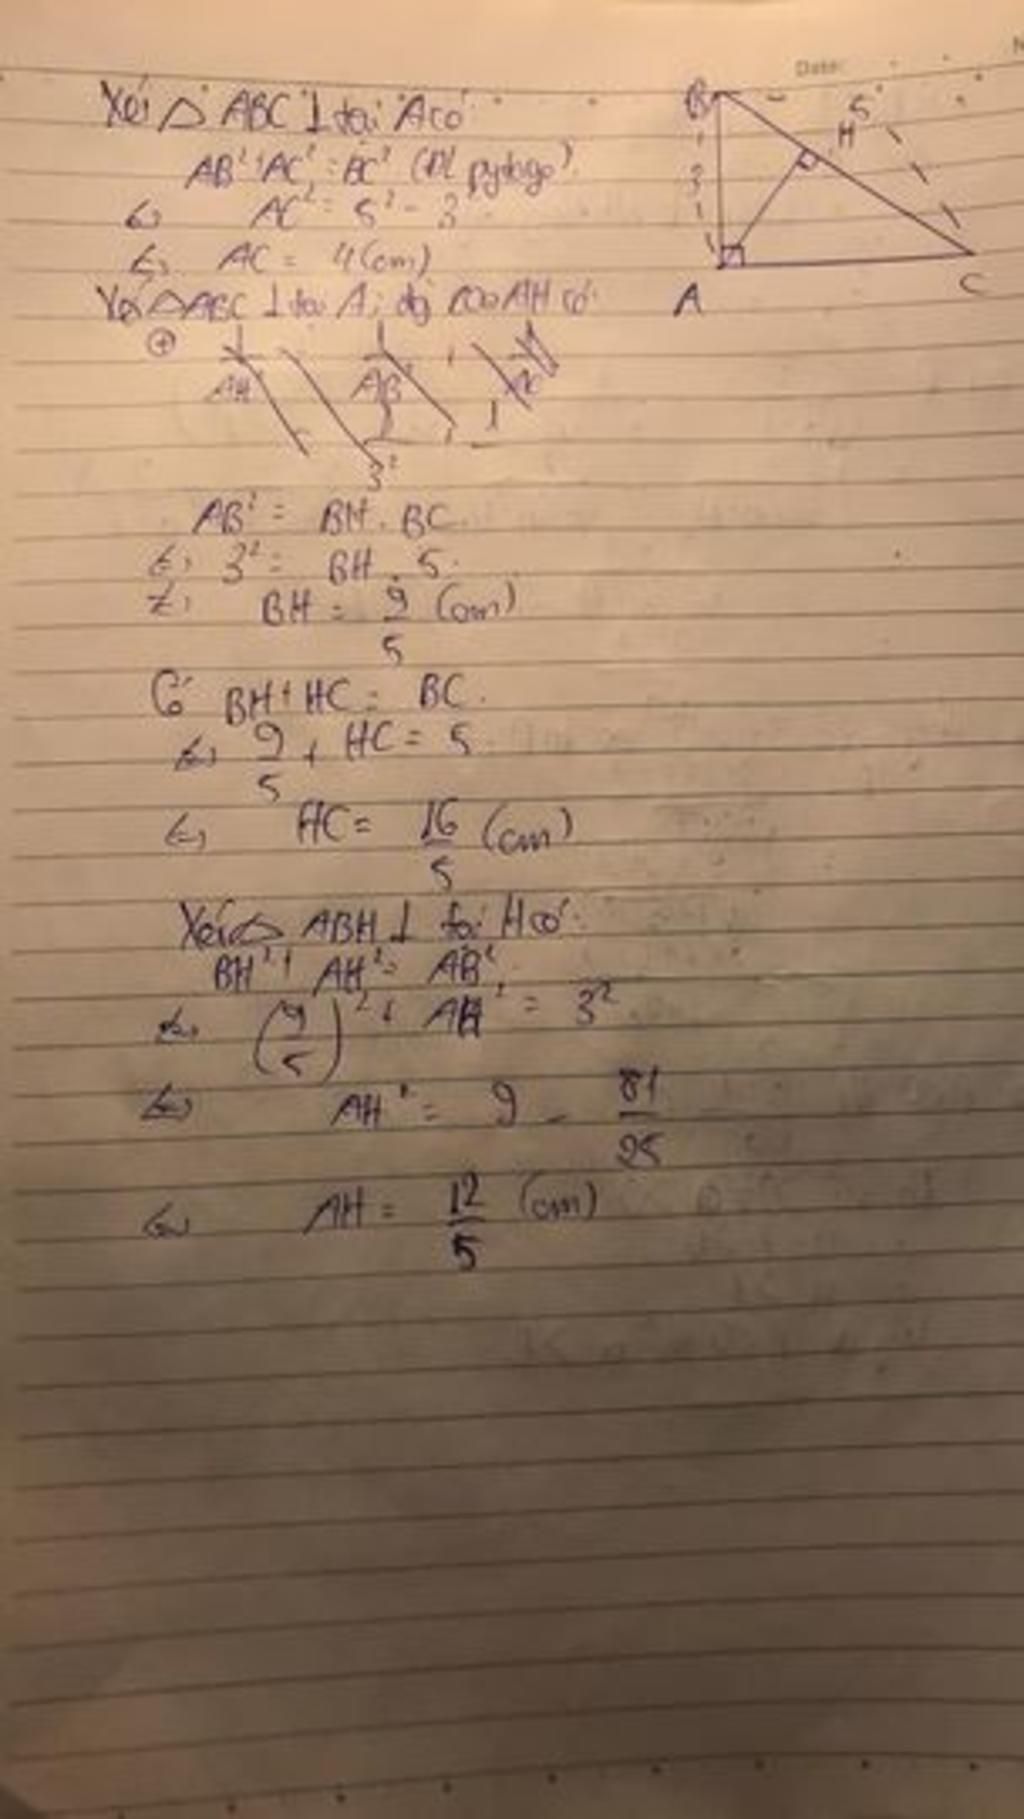 Date:
B
5
H
3
A
C
Xét △ ABC ⊥ tại A có
AB² + AC² = BC² (ĐL pytago)
<=> AC² = 5² - 3
<=> AC = 4 (cm)
Xét △ ABC ⊥ tại A; đg cao AH có
AB² = BH . BC
<=> 3² = BH . 5
<=> BH = 9/5 (cm)
Có BH + HC = BC
<=> 9/5 + HC = 5
<=> HC = 16/5 (cm)
Xét △ ABH ⊥ tại H có
BH² + AH² = AB²
<=> (9/5)² + AH² = 3²
<=> AH² = 9 - 81/25
<=> AH = 12/5 (cm)